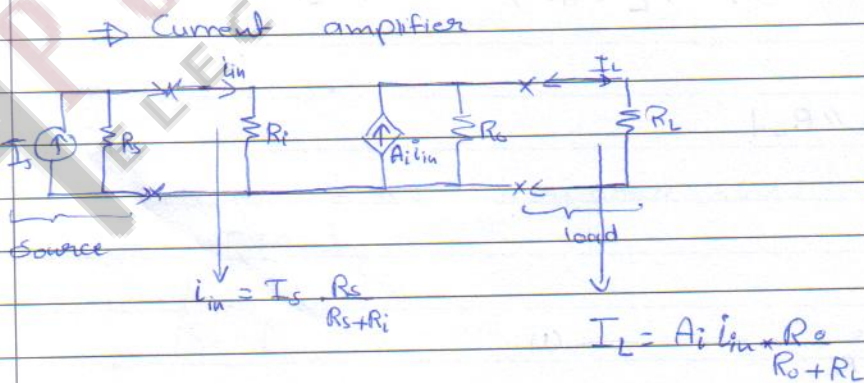 ⇒ Current amplifier
iin
IL
Is
Rs
Ri
Ai iin
Ro
RL
Source
load
iin = Is . Rs / Rs+Ri
IL = Ai iin × Ro / Ro + RL
ELEC